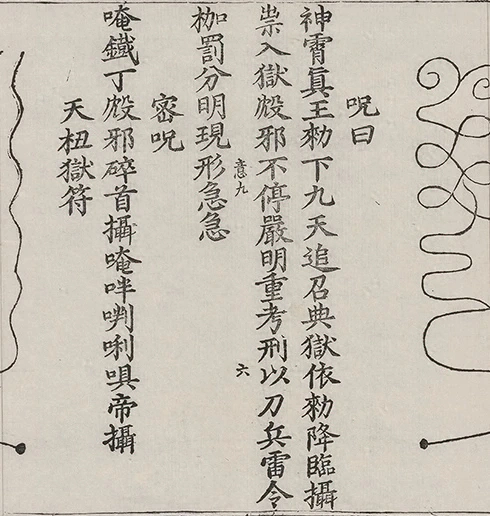 呪曰
神霄真王勑下九天追召典獄依勑降臨攝
祟入獄殺邪不停嚴明重考刑以刀兵雷令
意九
六
枷罰分明現形急急
密呪
唵鐵丁殺邪碎首攝唵吽㖠唎唄帝攝
天杻獄符